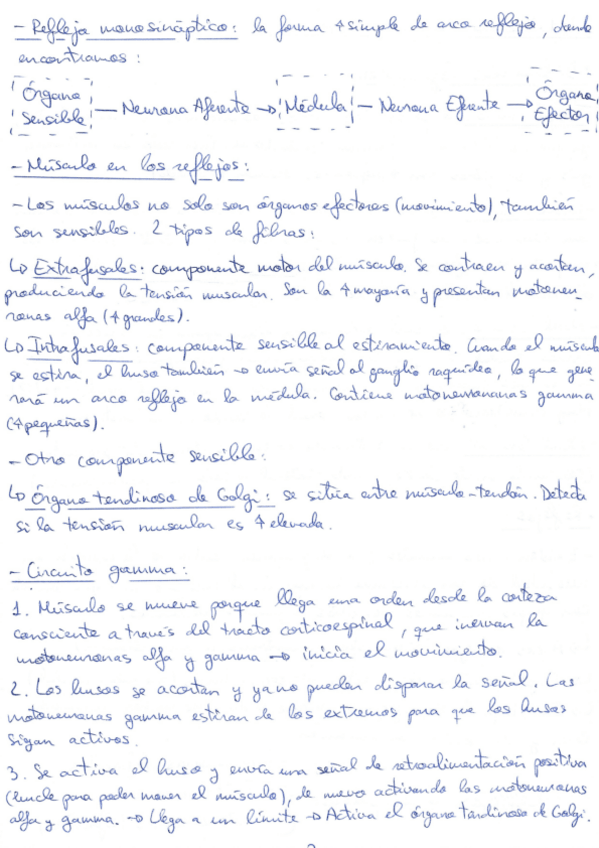 - Refleja monosináptico: la forma + simple de arco reflejo, donde
encontramos:
Órgano Sensible — Neurona Aferente → Médula — Neurona Eferente → Órgano Efector
- Músculo en los reflejos:
- Los músculos no solo son órganos efectores (movimiento), también
son sensibles. 2 tipos de fibras:
↳ Extrafusales: componente motor del músculo. Se contraen y acortan,
produciendo la tensión muscular. Son la + mayoría y presentan motoneu-
ronas alfa (+ grandes).
↳ Intrafusales: componente sensible al estiramiento. Cuando el músculo
se estira, el huso también → envía señal al ganglio raquídeo, lo que gene
rará un arco reflejo en la médula. Contiene motoneuronas gamma
(+ pequeñas).
- Otro componente sensible:
↳ Órgano tendinoso de Golgi: se sitúa entre músculo-tendón. Detecta
si la tensión muscular es + elevada.
- Circuito gamma:
1. Músculo se mueve porque llega una orden desde la corteza
consciente a través del tracto corticoespinal, que inervan la
motoneuronas alfa y gamma → inicia el movimiento.
2. Los husos se acortan y ya no pueden disparar la señal. Las
motoneuronas gamma estiran de los extremos para que los husos
sigan activos.
3. Se activa el huso y envía una señal de retroalimentación positiva
(bucle para poder mover el músculo), de nuevo activando las motoneuronas
alfa y gamma. → Llega a un límite → Activa el órgano tendinoso de Golgi.